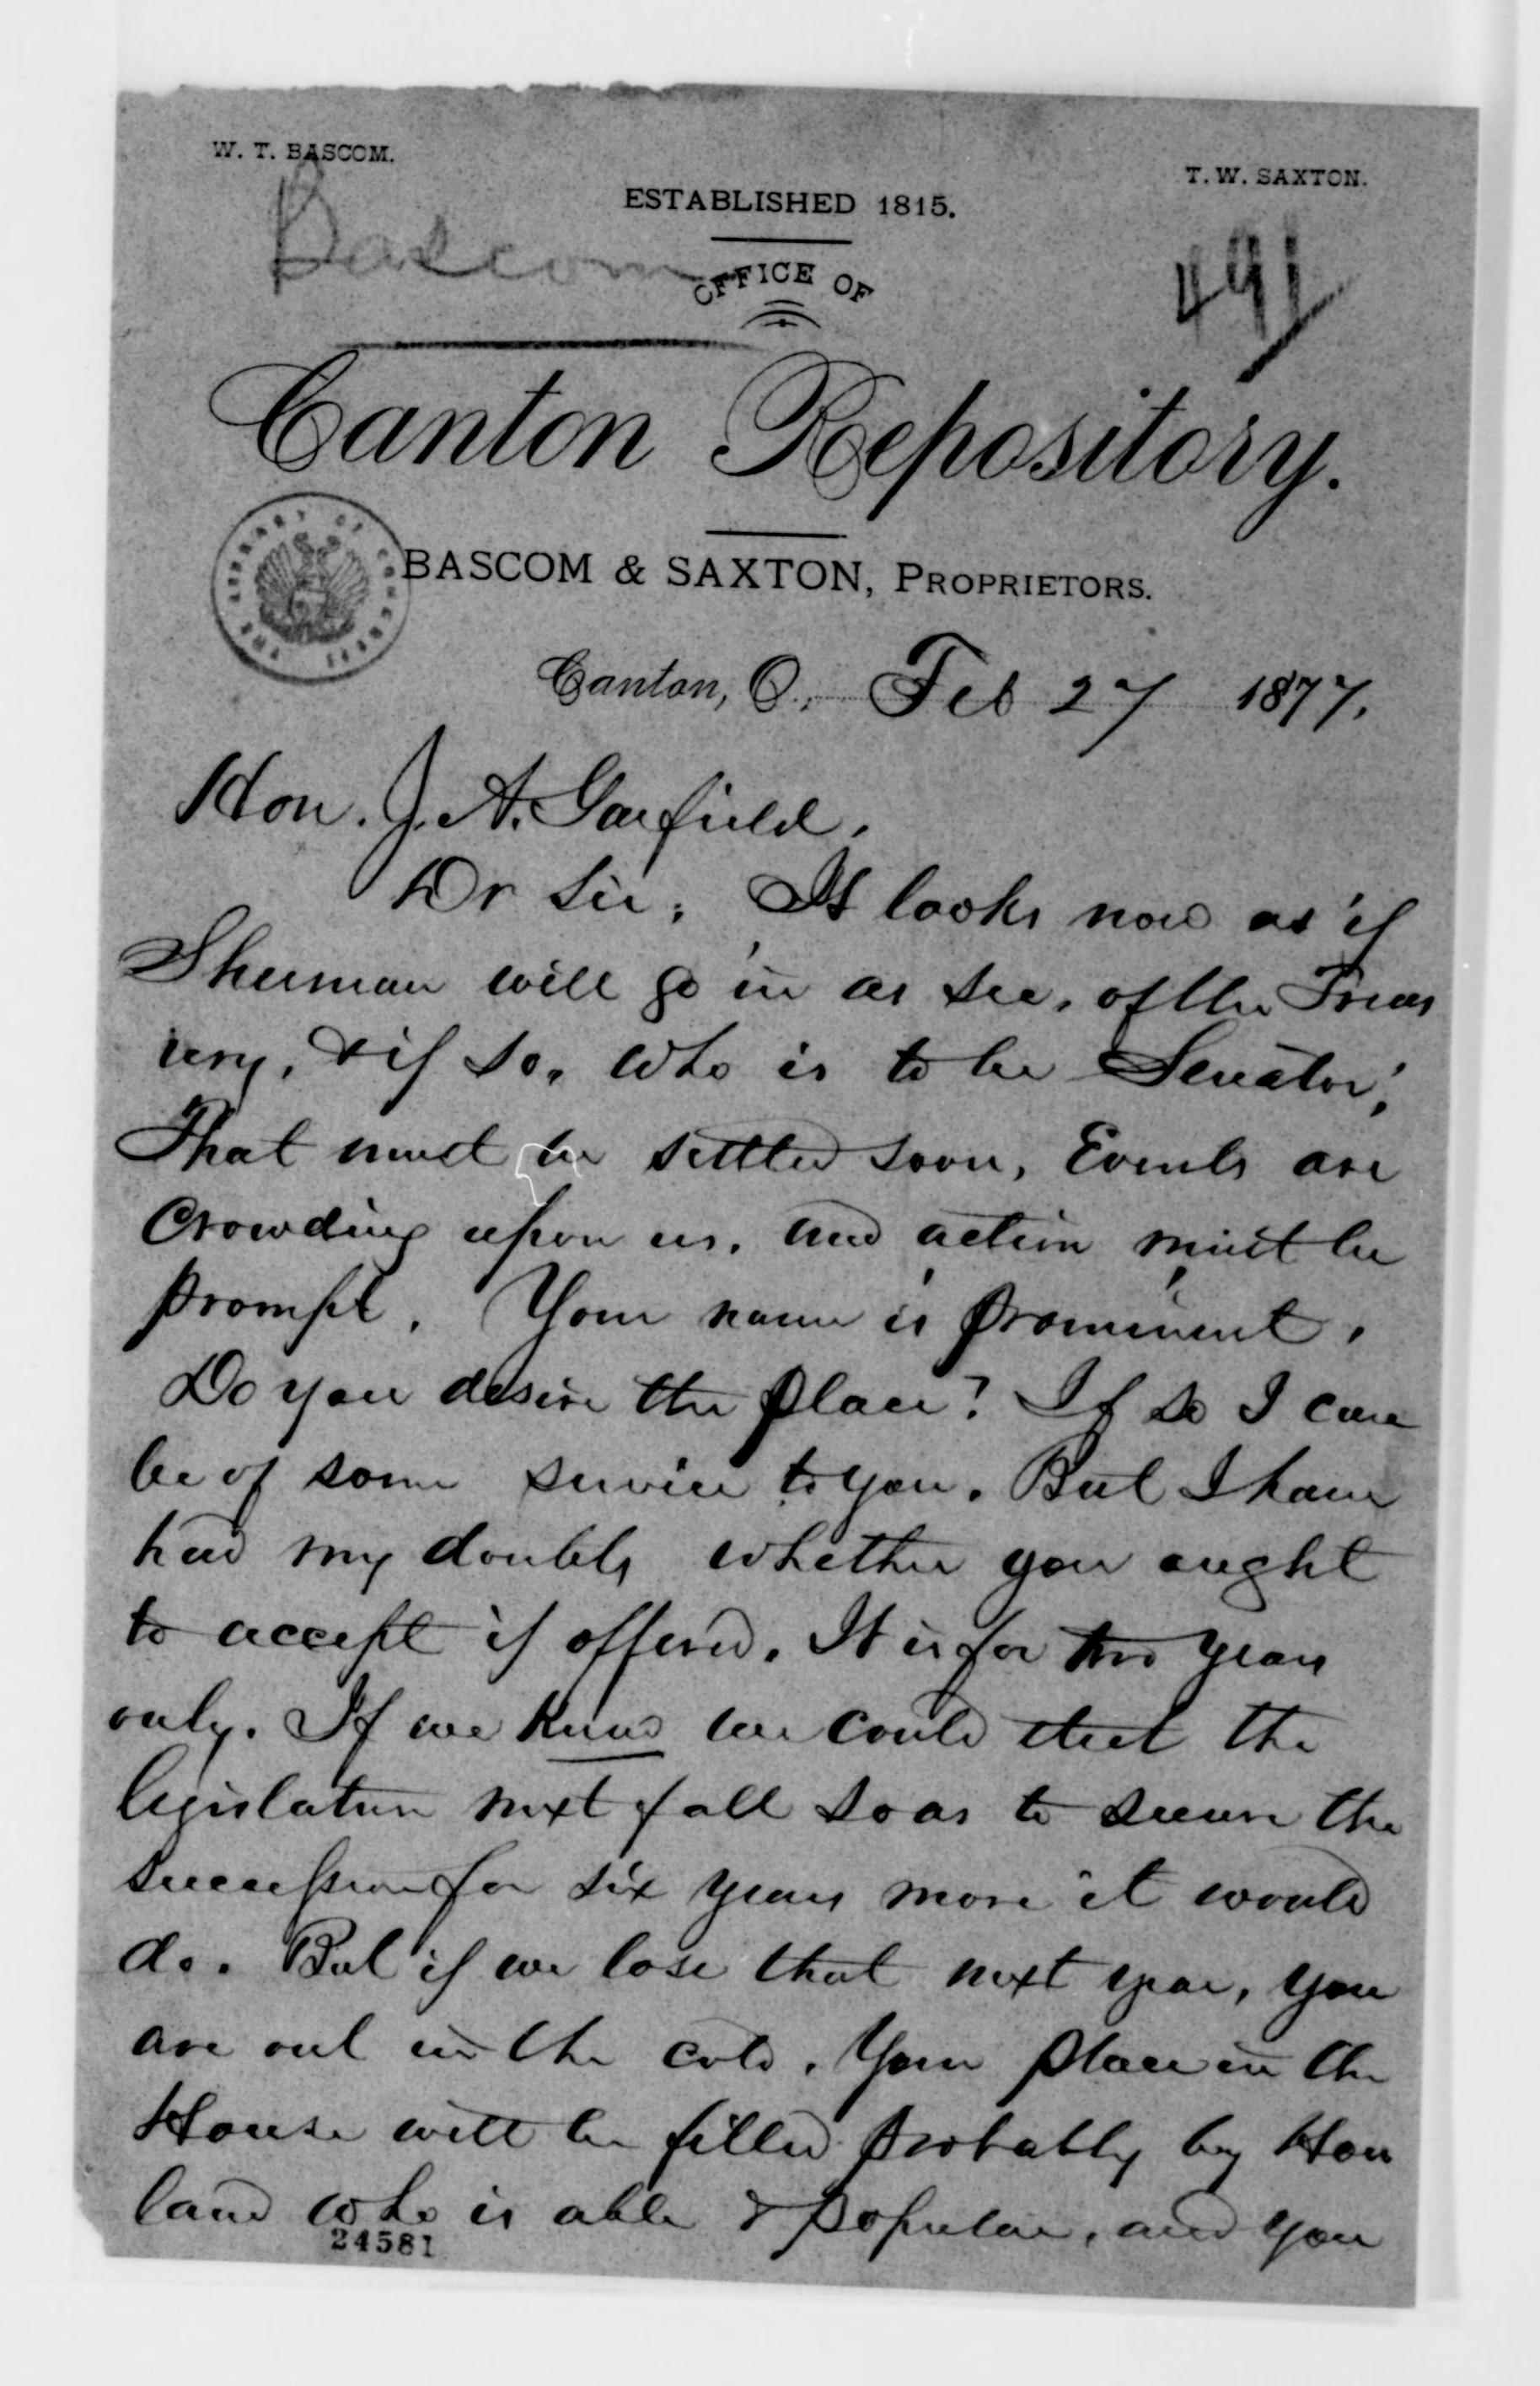 W. T. BASCOM.
T. W. SAXTON.
ESTABLISHED 1815.
Bascom
491
OFFICE OF
Canton Repository.
THE LIBRARY OF CONGRESS
BASCOM & SAXTON, PROPRIETORS.
Canton, O., Feb 27 1877.
Hon. J. A. Garfield.
Dr Sir; It looks now as if
Sherman will go in as Sec. of the Treas
ury, & if so, who is to be Senator;
That must be settled soon, Events are
crowding upon us, and action must be
prompt. Your name is prominent.
Do you desire the place? If so I can
be of some service to you. But I have
had my doubts whether you ought
to accept if offered. It is for two years
only. If we knew we could elect the
legislature next fall so as to secure the
succession for six years more it would
do. But if we lose that next year, you
are out in the cold. Your place in the
House will be filled probably by How
land who is able & popular, and you
24581